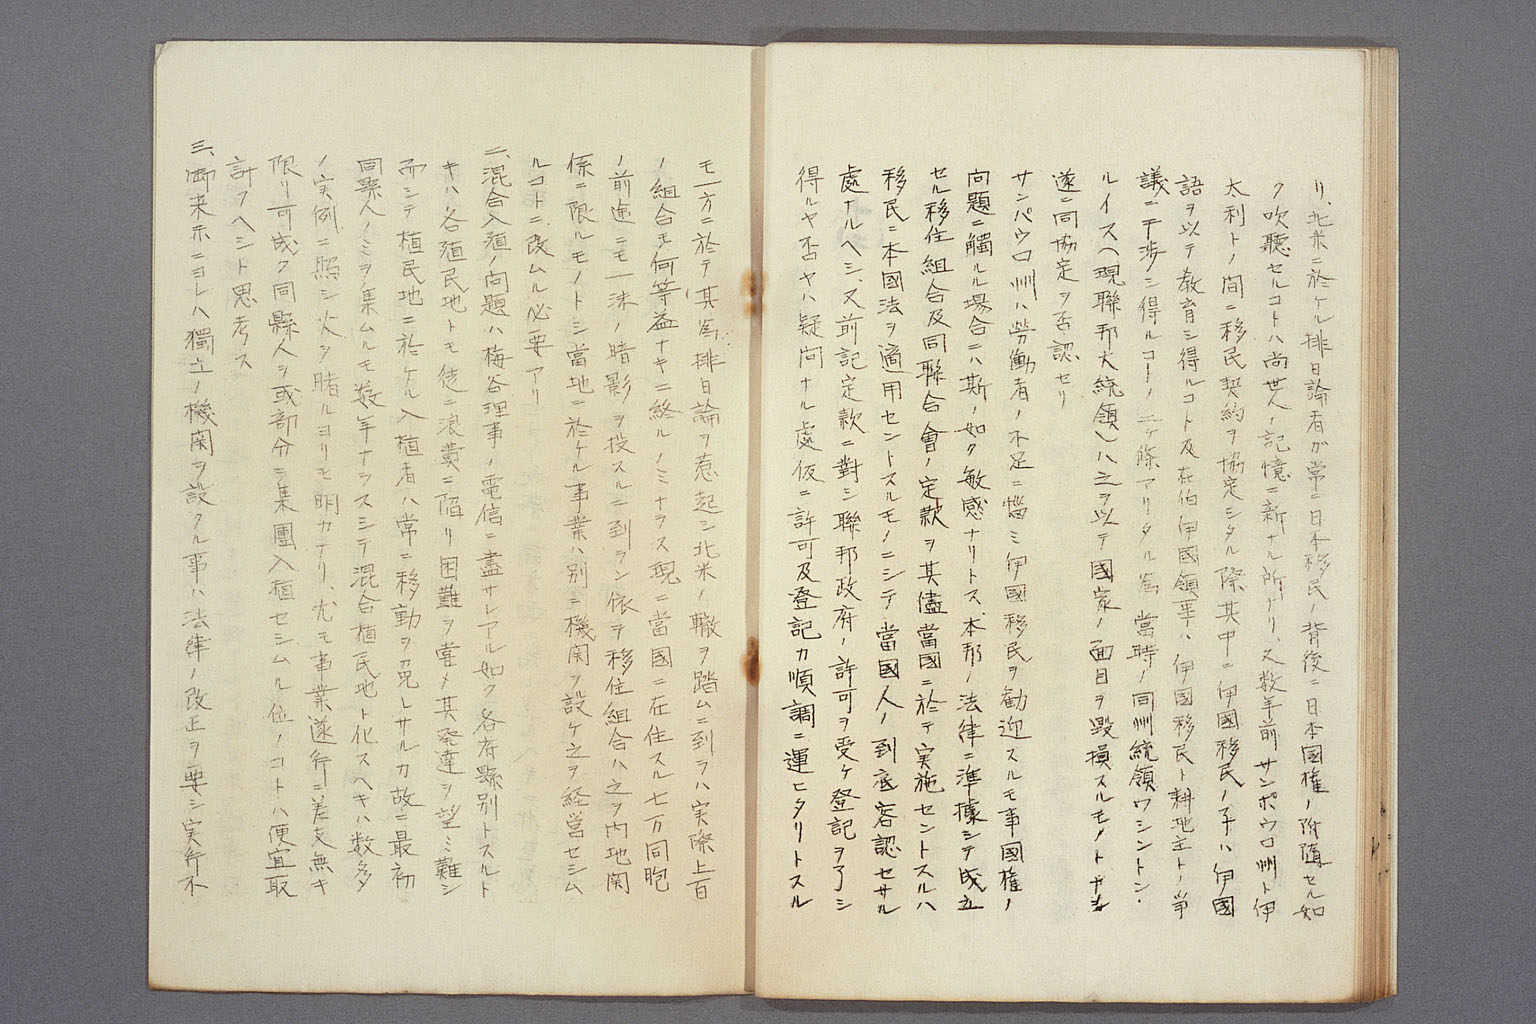 リ、北米ニ於ケル排日論者ガ常ニ日本移民ノ背後ニ日本國権ノ附随セル如
ク吹聴セルコトハ尚世人ノ記憶ニ新ナル所ナリ、又数年前サンポウロ州ト伊
太利トノ間ニ移民契約ヲ協定シタル際其中ニ伊國移民ノ子ハ伊國
語ヲ以テ教育シ得ルコト及在伯伊國領事ハ伊国移民ト耕地主トノ争
議ニ干渉シ得ルコトノ二ケ條アリタル為當時ノ同州統領ワシントン・
ルイス(現聯邦大統領)ハ之ヲ以テ國家ノ面目ヲ毀損スルモノトナシ
遂ニ同協定ヲ否認セリ
サンパウロ州ハ勞働者ノ不足ニ悩ミ伊國移民ヲ勧迎スルモ事國権ノ
問題ニ觸ルル場合ニハ斯ノ如ク敏感ナリトス、本邦ノ法律ニ準據シテ成立
セル移住組合及同聯合會ノ定款ヲ其儘當國ニ於テ実施セントスルハ
移民ニ本國法ヲ適用セントスルモノニシテ當國人ノ到底容認セサル
處ナルヘシ、又前記定款ニ對シ聯邦政府ノ許可ヲ受ケ登記ヲ了シ
得ルヤ否ヤハ疑問ナル處仮ニ許可及登記カ順調ニ運ヒタリトスル
モ一方ニ於テ其為排日論ヲ惹起シ北米ノ轍ヲ踏ムニ到ラハ実際上百
ノ組合モ何等益ナキニ終ルノミナラス現ニ當國ニ在住スル七万同胞
ノ前途ニモ一沫ノ暗影ヲ投スルニ到ラン依テ移住組合ハ之ヲ内地関
係ニ限ルモノトシ當地ニ於ケル事業ハ別ニ機関ヲ設ケ之ヲ経営セシム
ルコトニ改ムル必要アリ
二、混合入殖ノ問題ハ梅谷理事ノ電信ニ盡サレアル如ク各府縣別トスルト
キハ各殖民地トモ徒ニ浪費ニ陥リ困難ヲ嘗メ其発達ヲ望ミ難シ
而シテ植民地ニ於ケル入植者ハ常ニ移動ヲ免レサルカ故ニ最初
同縣人ノミヲ集ムルモ数年ナラスシテ混合植民地ト化スヘキハ数多
ノ実例ニ照シ火ヲ睹ルヨリモ明カナリ、尤モ事業遂行ニ差支無キ
限リ可成ク同縣人ヲ或部分ニ集團入植セシムル位ノコトハ便宜取
計フヘシト思考ス
三、御来示ニヨレハ獨立ノ機関ヲ設クル事ハ法律ノ改正ヲ要シ実行不